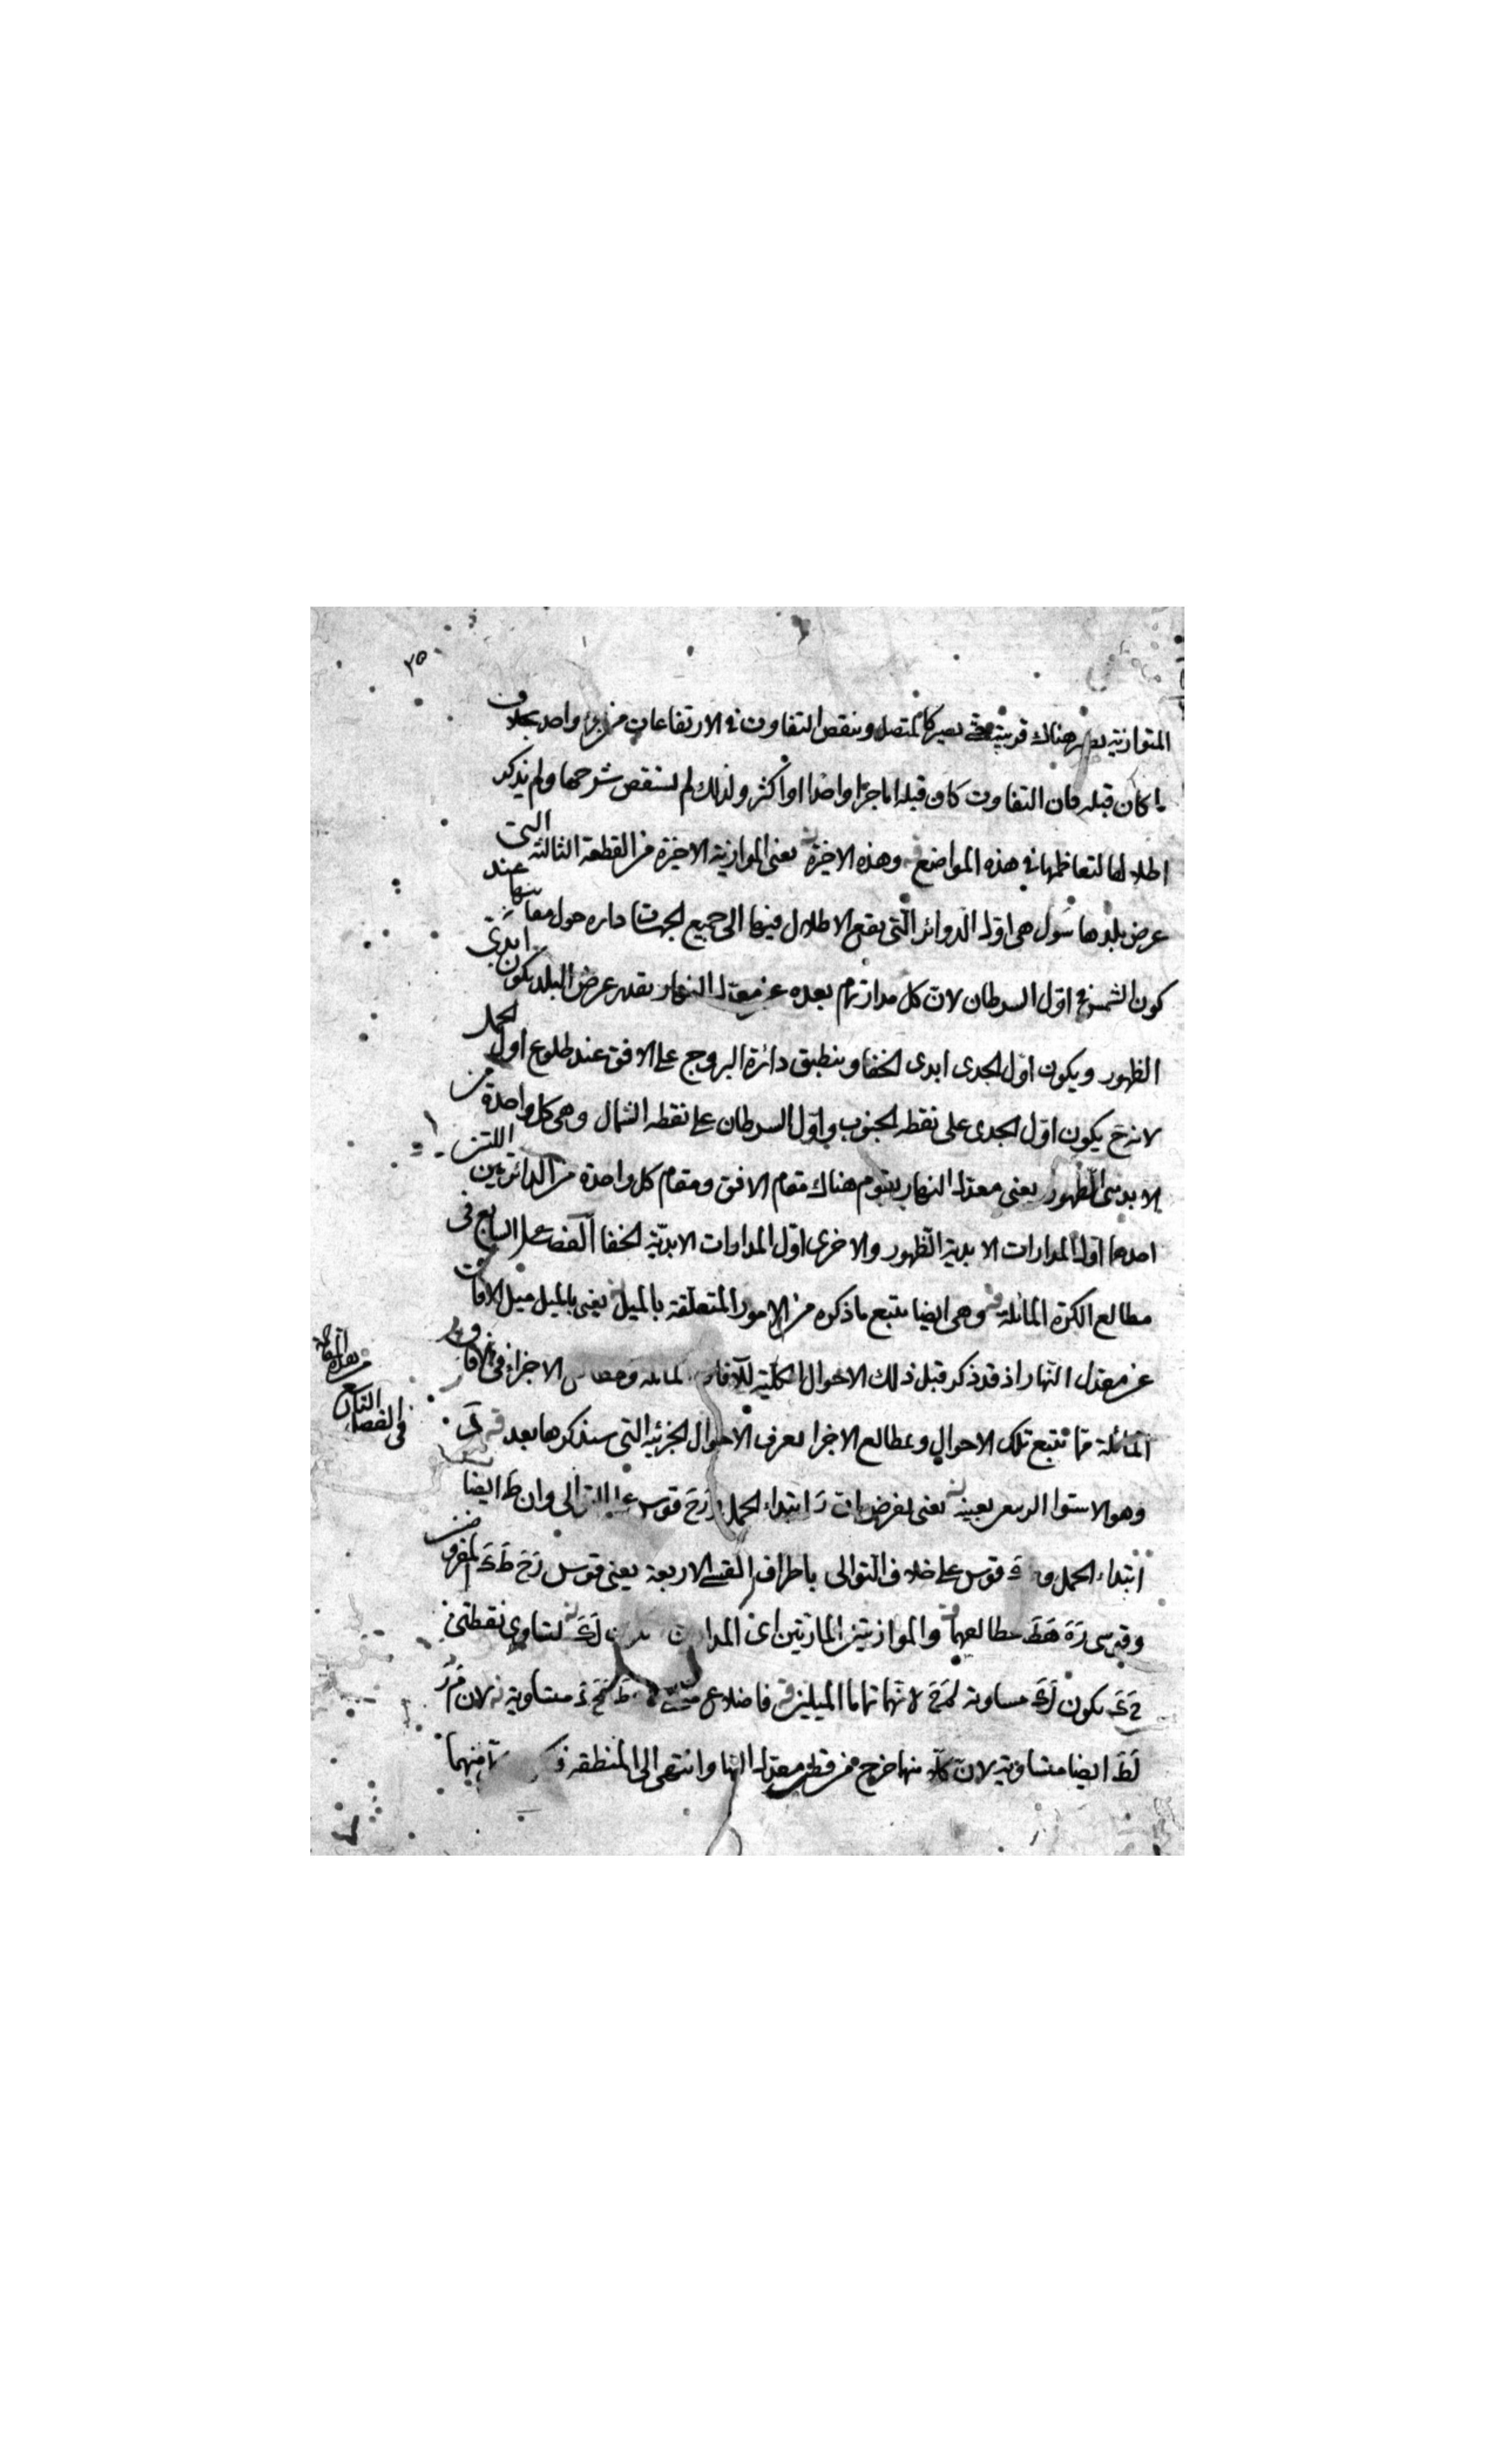 ٣٥
المتوازية تصير هناك قريبة حتى تصير كالمتصل وينقص التفاوت في الارتفاعات من جزو واحد بخلاف
ما كان قبله فان التفاوت كان قبله اما جزا واحدا او اكثر ولذلك لم يستقص شرحها ولم يذكر
اطلالها لتعاظمها في هذه المواضع وهذه الاخيرة يعنى الموازية الاخيرة من القطعة الثالثة التى
عرض بلدها هى اول الدوائر التى يقع الاطلال فيها الى جميع الجهات داره حول مقاييسها عند
كون الشمس في اول السرطان لان كل مدار تمام بعده عن معدل النهار بقدر عرض البلد يكون ابدى
الظهور ويكون اول الجدى ابدى الخفا وينطبق دائرة البروج على الافق عند طلوع اول الحمل
لانه ح يكون اول الجدى على نقطه الجنوب واول السرطان على نقطه الشمال وهى كل واحدة من
الابدى الظهور يعنى معدل النهار يقوم هناك مقام الافق ومقام كل واحدة من الدائرتين اللتين
احدهما اول المدارات الابدية الظهور والاخرى اول المدارات الابدية الخفا الفصل السابع فى
مطالع الكرة المائلة وهى ايضا يتبع ما ذكره من الامور المتعلقة بالميل يعنى بالميل ميل الافاق
عن معدل النهار اذ قد ذكر قبل ذلك الاحوال الكلية للآفاق المائلة ومطالع الاجزاء فى الافاق
المائلة مما تتبع تلك الاحوال وبمطالع الاجزا يعرف الاحوال الجزئية التى سنذكرها بعد
فى الفصل الثامن من هذه المقالة
وهو الاستوا الربيعى بعينه يعنى نفرض ان ز ابتداء الحمل و زح قوس على التوالى وان ط ايضا
ابتداء الحمل و ط ك قوس على خلاف التوالى باطراف القسى الاربعة يعنى قوسى زح ط ك المفروضتين
وقوسى زه هط مطالعهما والموازيتين المارتين اى المدارين لك لتساوى نقطتى
ح ك يكون لك مساوية لمح لانهما تماما الميلين فاضلاع متساوية لان م ز
لط ايضا متساوية لان كلا منها خرج من قطب معدل النهار وانتهى الى المنطقة منهما